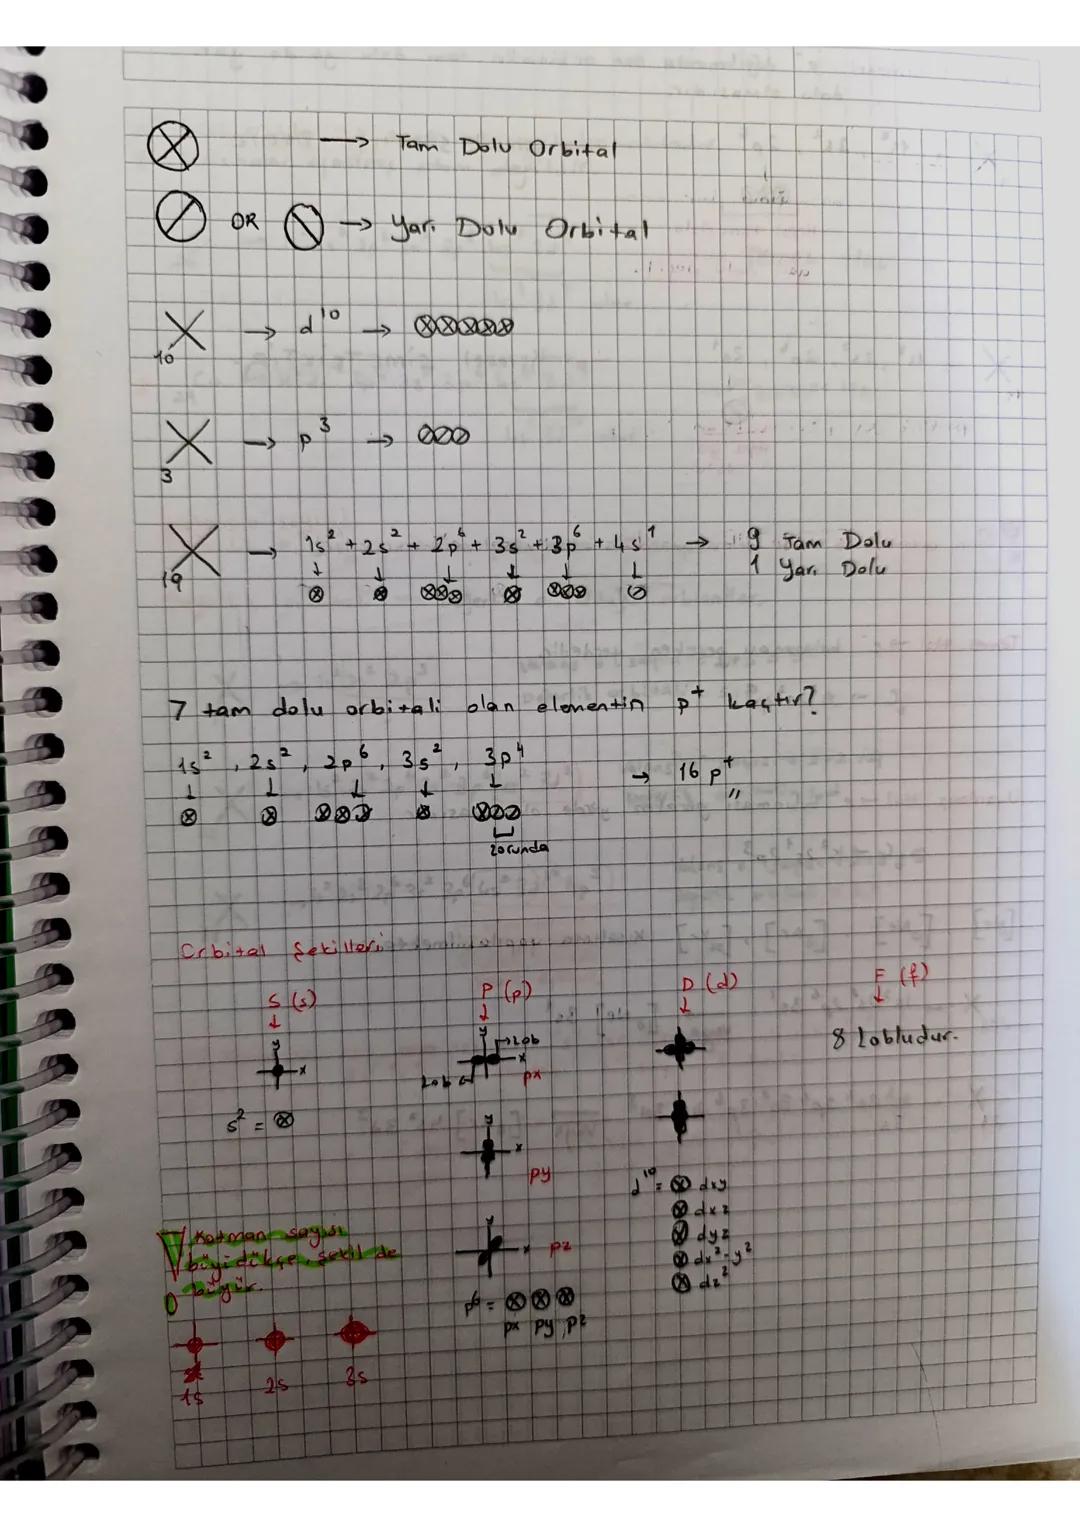 ⊗ → Tam Dolu Orbital
⊘ OR ⦸ → Yarı Dolu Orbital
₁₀X → d¹⁰ → ⊗⊗⊗⊗⊗
₃X → p³ → ⊘⊘⊘
₁₉X → 1s² + 2s² + 2p⁶ + 3s² + 3p⁶ + 4s¹ → 9 Tam Dolu
1 Yarı Dolu
7 tam dolu orbitali olan elementin p⁺ kaçtır?
1s², 2s², 2p⁶, 3s², 3p⁴ → 16 p⁺
zorunda
Orbital Şekilleri
S (s) P (p) D (d) F (f)
8 Lobludur.
y y Lob
x x
Lob px
s² = ⊗
y
x
py
d¹⁰ = ⊗ dxy
⊗ dxz
⊗ dyz
⊗ dx²-y²
⊗ dz²
y
x pz
Katman sayısı
büyüdükçe, şekil de
büyür.
p⁶ = ⊗ ⊗ ⊗
px py pz
1s 2s 3s